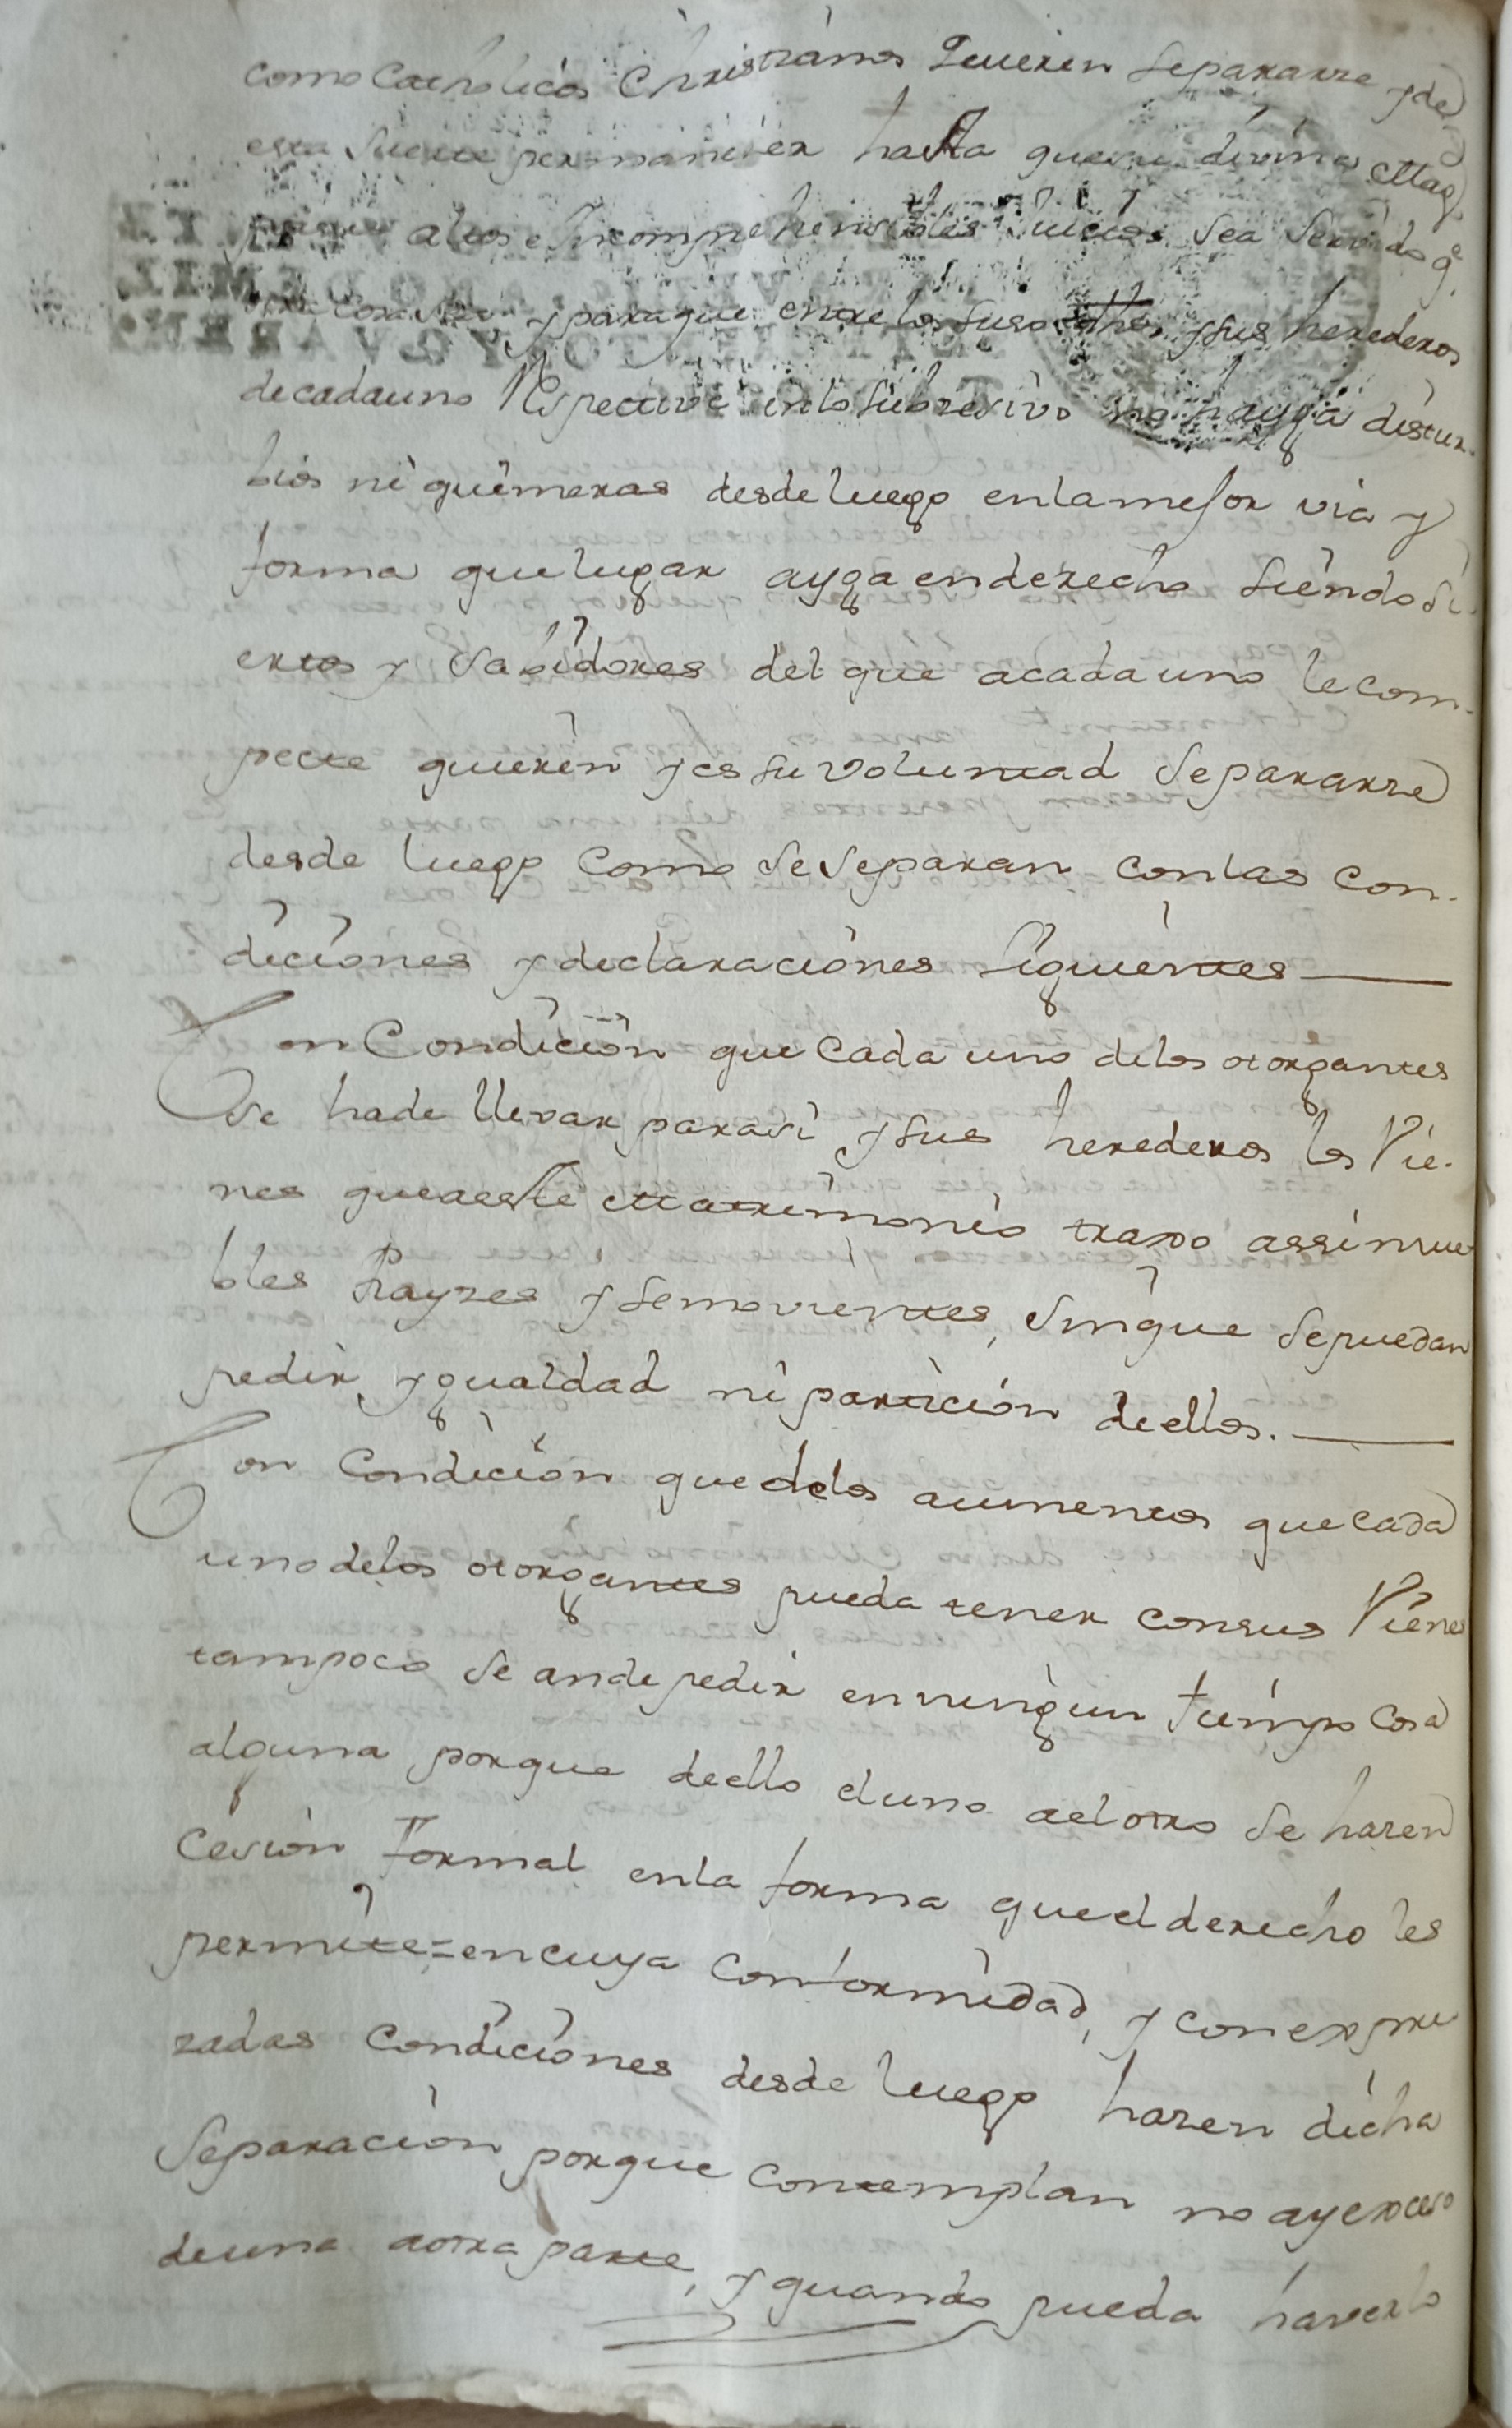 como Catholicos Christianos quieren separarse y de
esta suerte permanecer hasta que su divina Mag.
por sus altos e Yncomprehensibles Juicios sea servido q.e
y para que entre los suso dhos, y sus herederos
de cada uno Respective en lo subcesivo no hayga distur-
bios ni quimeras desde luego en la mejor via y
forma que lugar ayga en derecho siendo si-
ertos y savidores del que a cada uno le com-
pecte quieren y es su voluntad separarse
desde luego como se separan con las con-
diciones y declaraciones siguientes
Con Condicion que cada uno de los otorgantes
se ha de llevar para si y sus herederos los Vie-
nes que a este Matrimonio traxo assi mue
bles Rayzes y semovientes, sin que se puedan
pedir, ygualdad ni particion de ellos.
Con Condicion que de los aumentos que cada
uno de los otorgantes pueda tener con sus Vienes
tampoco se an de pedir en ningun tiempo cosa
alguna porque de ello el uno a el otro se hazen
cesion formal en la forma que el derecho les
permite = en cuya conformidad, y con expre
zadas condiciones desde luego hazen dicha
separacion porque contemplan no ay exceso
de una a otra parte, y quando pueda haverlo